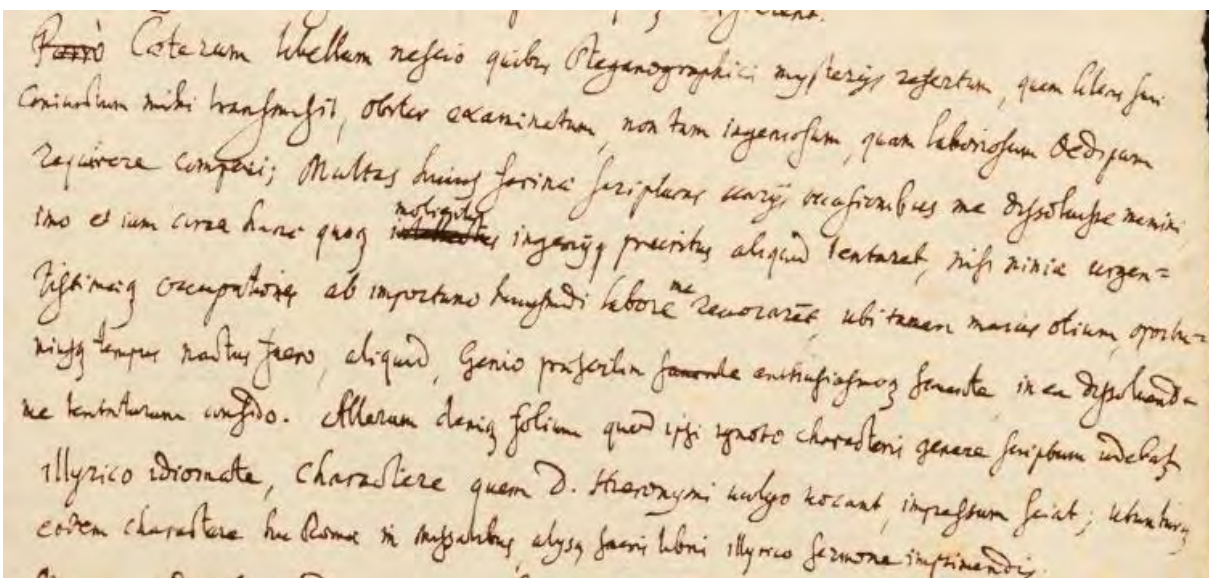 Porrò Cæterum libellum nescio quibus steganographici mysterijs refertum, quem literis suis
coniunctum mihi transmisit, obiter examinatum, non tam ingeniosum, quam laboriosum Oedipum
requirere comperi; Multas huius farinæ scripturas uarijs occasionibus me dissoluisse memini
imo et circa hanc quoq ingenijq pruritus aliquid tentaret, nisi nimiæ urgen=
tissimæq occupationes ab importuno huiusmodi labore me reuocarēt, ubi tamen maius otium, oportu=
niusq tempus nactus fuero, aliquid, Genio præsertim enthusiasmoq fauente in ea dissoluenda
me tentaturum confido. Alterum deniq folium quod ipsi ignoto characteris genere scriptum uidebat
illyrico idiomate, charactere quem D. Hieronymi uulgo uocant, impressum sciat; utunturq
eodem charactere hic Romæ in missalibus, alijsq sacris libris illyrico sermone imprimendis.